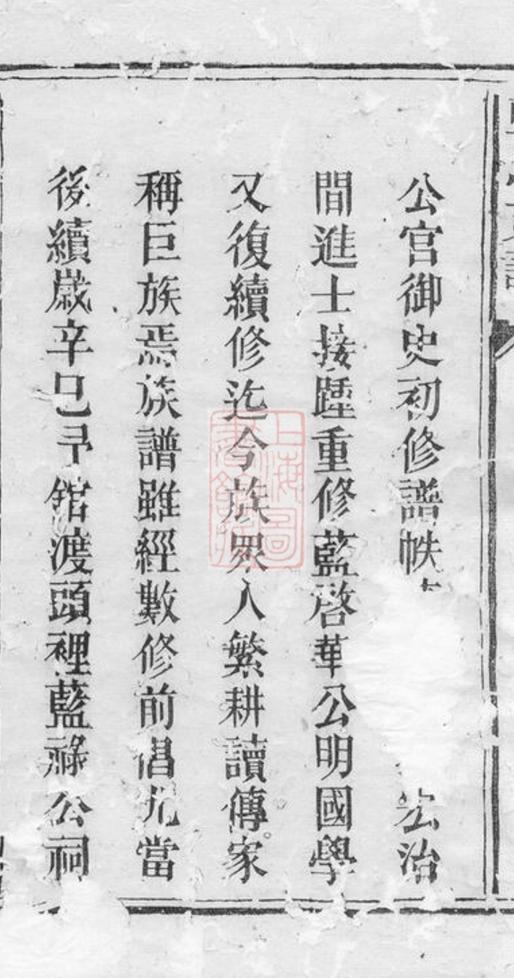 公官御史初修譜帙宏治
間進士接踵重修藍啓華公明國學
又復續修迄今族眾人繁耕讀傳家
稱巨族焉族譜雖經數修前倡尤當
後續歲辛巳予舘渡頭裡藍祿公祠
上海圖